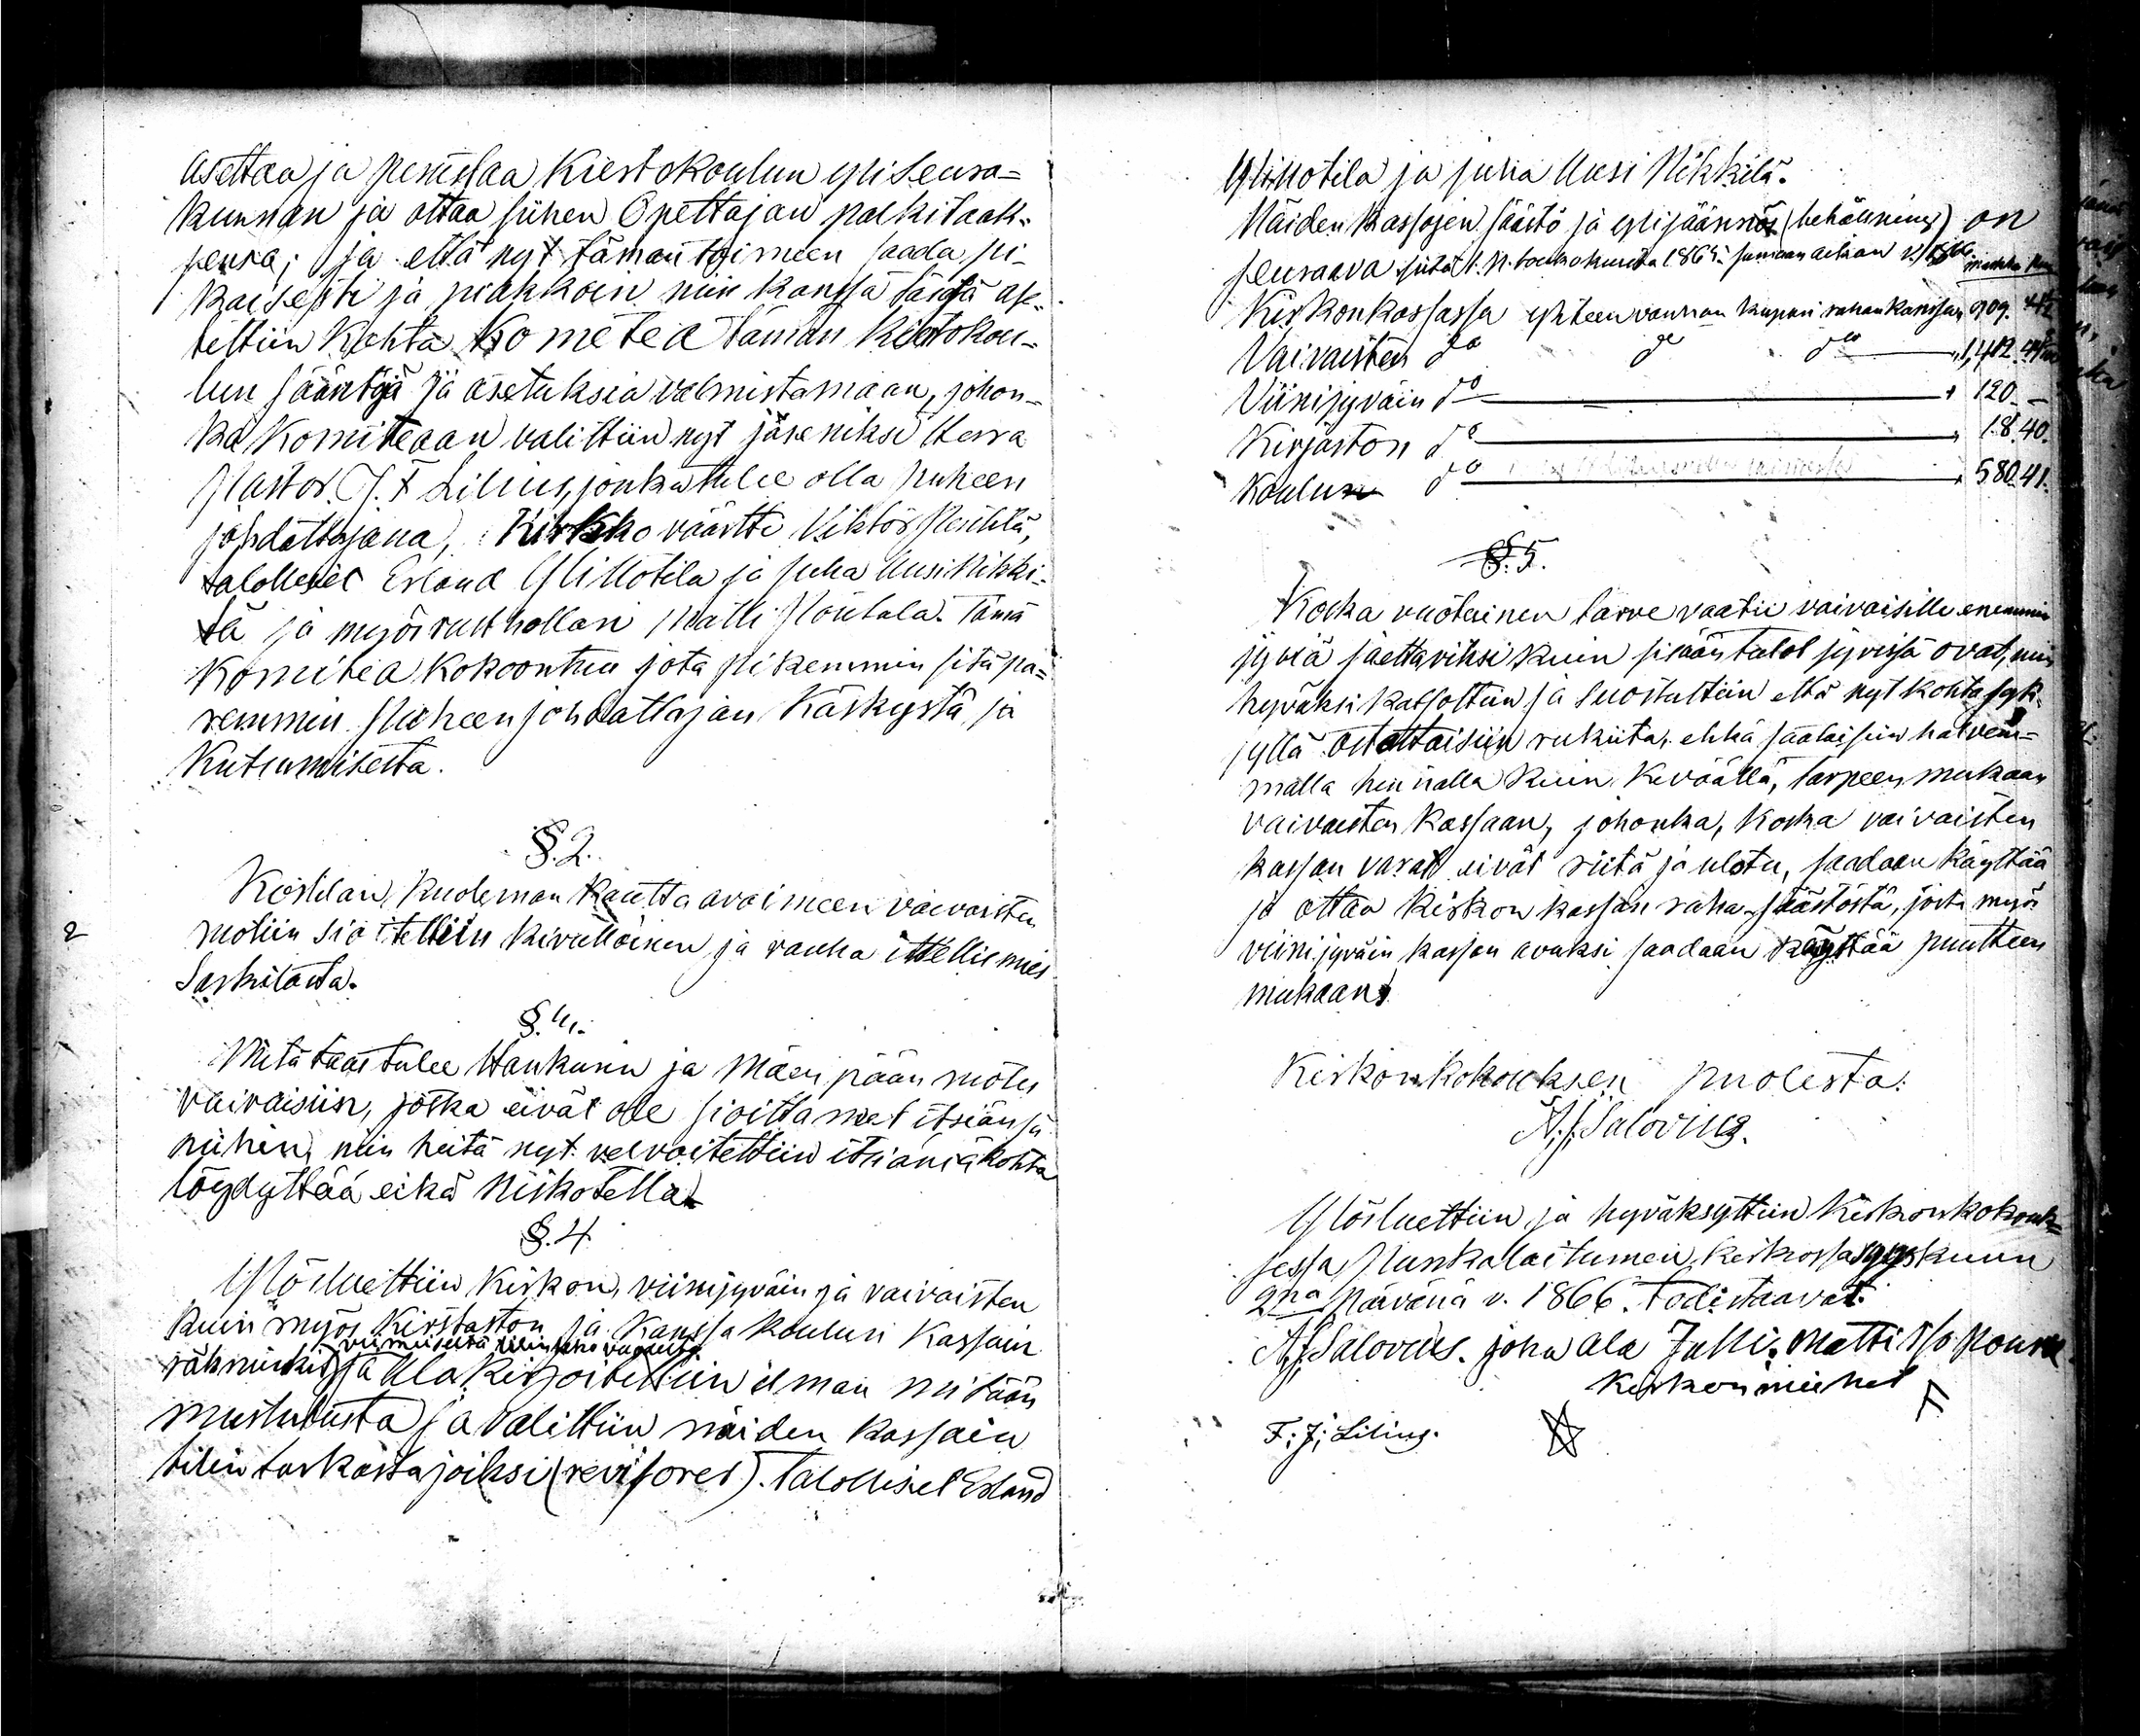 asettaa ja perustaa Kiertokoulun yli seura=
kunnan ja ottaa siihen Opettajan palkitaak=
sensa; ja että nyt tämän toimeen saada pi=
kaisesti ja piakkoin niin kanssa tästä ase=
tettiin kohta Kometea tämän kiertokou=
lun sääntöjä ja asetuksia valmistamaan, johon=
ka Komiteaan valittiin nyt jäseniksi Herra
Pastor F. J. Lilius, jonka tulee olla puheen
johdattajana, Kirkkoväärtti Viktor
talolliset Erland Yli Kotila ja Juha Uusi Nikki=
lä ja myös rusthollari Matti Poutala. Tämä
Komitea Kokoontuu jota pikemmin sitä pa=
remmin Puheenjohdattajan Käskystä ja
Kutsumisesta.
§. 2.
Köstilän kuoleman kautta avaimeen vaivaisten
2
ruotiin sioitettiin kivulloinen ja vanha itellismies
Sarkilasta.
§. 4.
Mitä taas tulee Haukurin ja Mäenpään ruotu
vaivaisiin, jotka eivät ole sioittaneet itsiänsä
niihin, niin heitä nyt velvoitettiin itsiänsä kohta
löydyttää eikä niskotella.
§. 4
Ylösluettiin Kirkon, viinijyväin ja vaivaisten
kuin myös Kirstaston ja Kanssa koulun Kassain
viimeisestä tilintekovuodesta
räkningit ja Allakirjoitettiin ilman mitään
muistutusta ja valittiin näiden Kassain
tilin tarkastajoiksi (revisores). Talolliset Erland
Yli Kotila ja Juha Uusi Nikkilä.
Näiden Kassojen säästö ja ylijäännös (behållning) on
seuraava siitä 1. P. toukokuusta 1865 samaan aikaan v. 1866. markka
Kirkonkassassa yhteen vannan kapuni rahan kanssa 909. 42
Vaivaisten do do do 1,412.
Viinijyväin do 120. —
Kirjaston do 18.40.
Koulun do 580.41.
§. 5.
Koska vuotuinen tarve vaatii vaivaisille enemmin
jyviä jaettaviksi kuin sisääntulot jyvissä ovat, niin
hyväksi katsottiin ja suostuttiin että nyt kohta syk=
syllä ostettaisiin rukiita, ehkä saataisiin halvem=
malla hinnalla kuin keväällä, tarpeen mukaan
vaivaisten kassaan, johonka, koska vaivaisten
kassan varat eivät riitä ja ulotu, saadaan käyttää
ja ottaa kirkon kassan raha-säästöstä, josta myös
viinijyväin kassan avuksi saadaan käyttää puutteen
mukaan.
Kirkonkokouksen puolesta:
A. J. Salovius.
Ylösluettiin ja hyväksyttiin Kirkonkokouk=
sessa Punkalaitumen kirkossa syyskuun
2na päivänä v. 1866. Todistaavat:
A. J. Salovius. Joha Ala Jalli. Matti
Kirkonmiehet
F. J. Lilius.